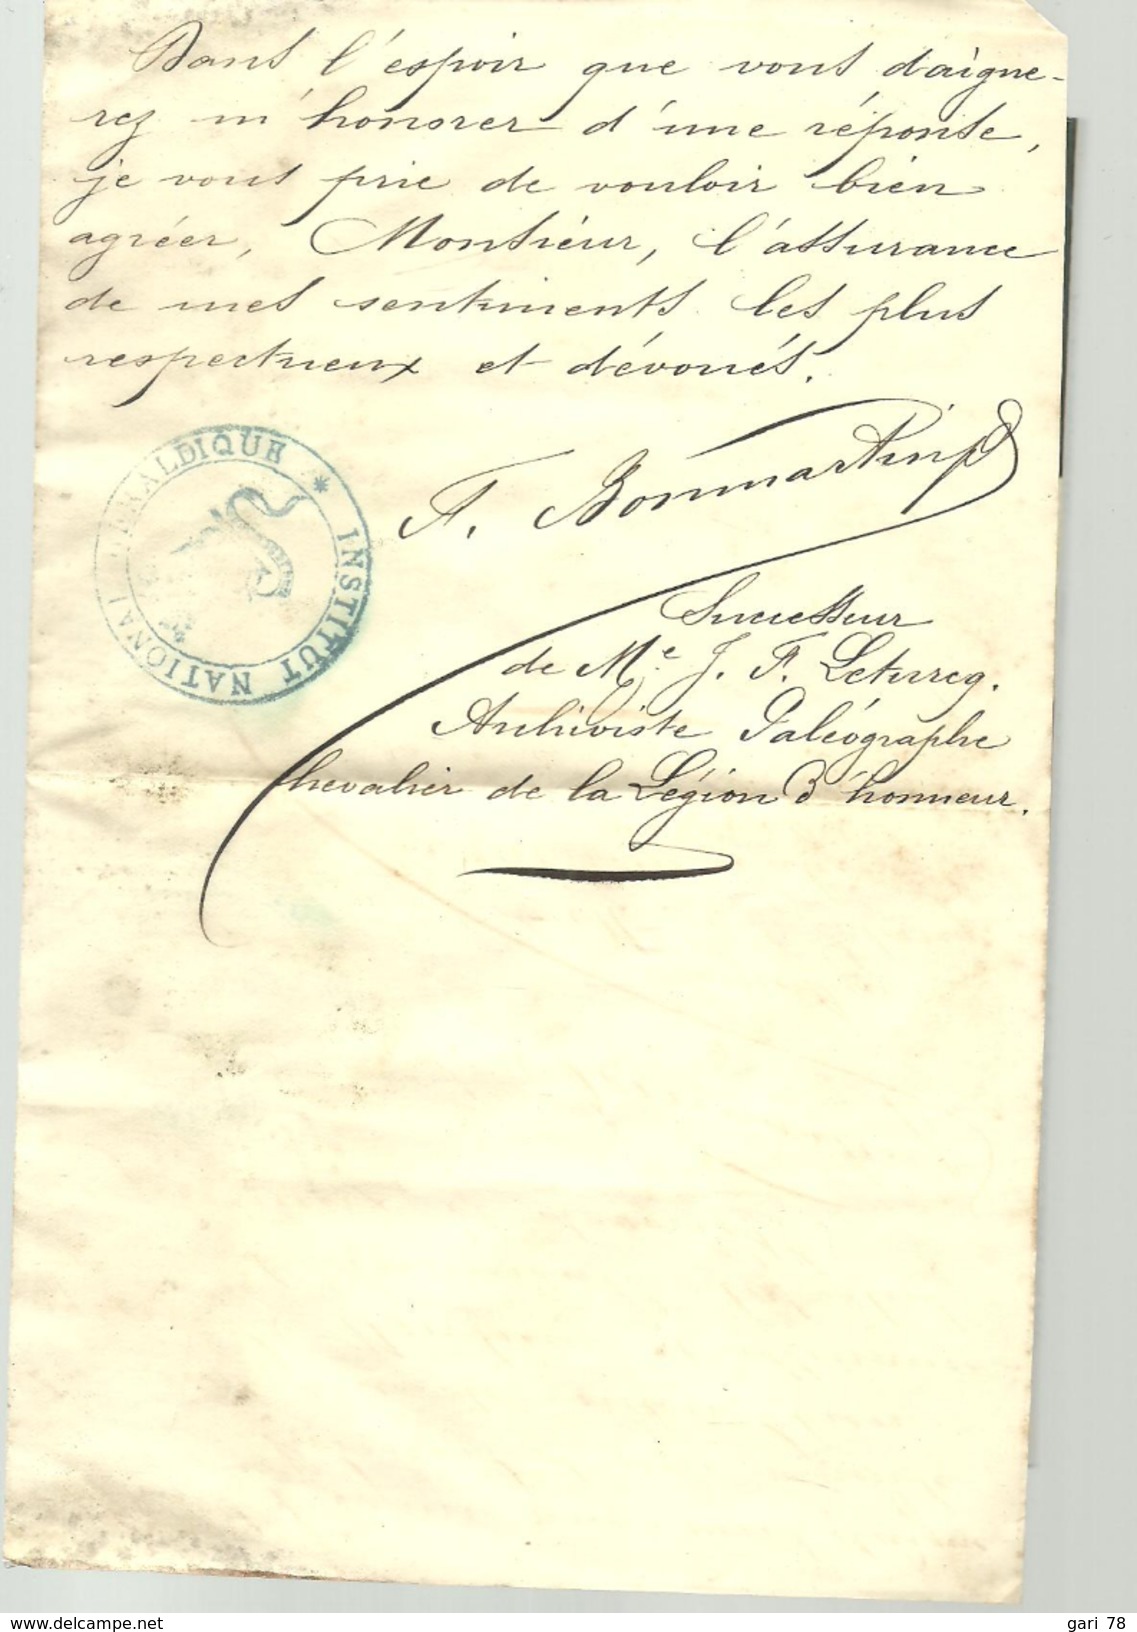 Dans l'espoir que vous daigne-
rez m'honorer d'une réponse,
je vous prie de vouloir bien
agréer, Monsieur, l'assurance
de mes sentiments les plus
respectueux et dévoués.
INSTITUT NATIONAL HÉRALDIQUE *
A. Bonmartin
Successeur
de Me. J. A. Leturcq.
Archiviste Paléographe
Chevalier de la Légion d'honneur.
www.delcampe.net
gari 78